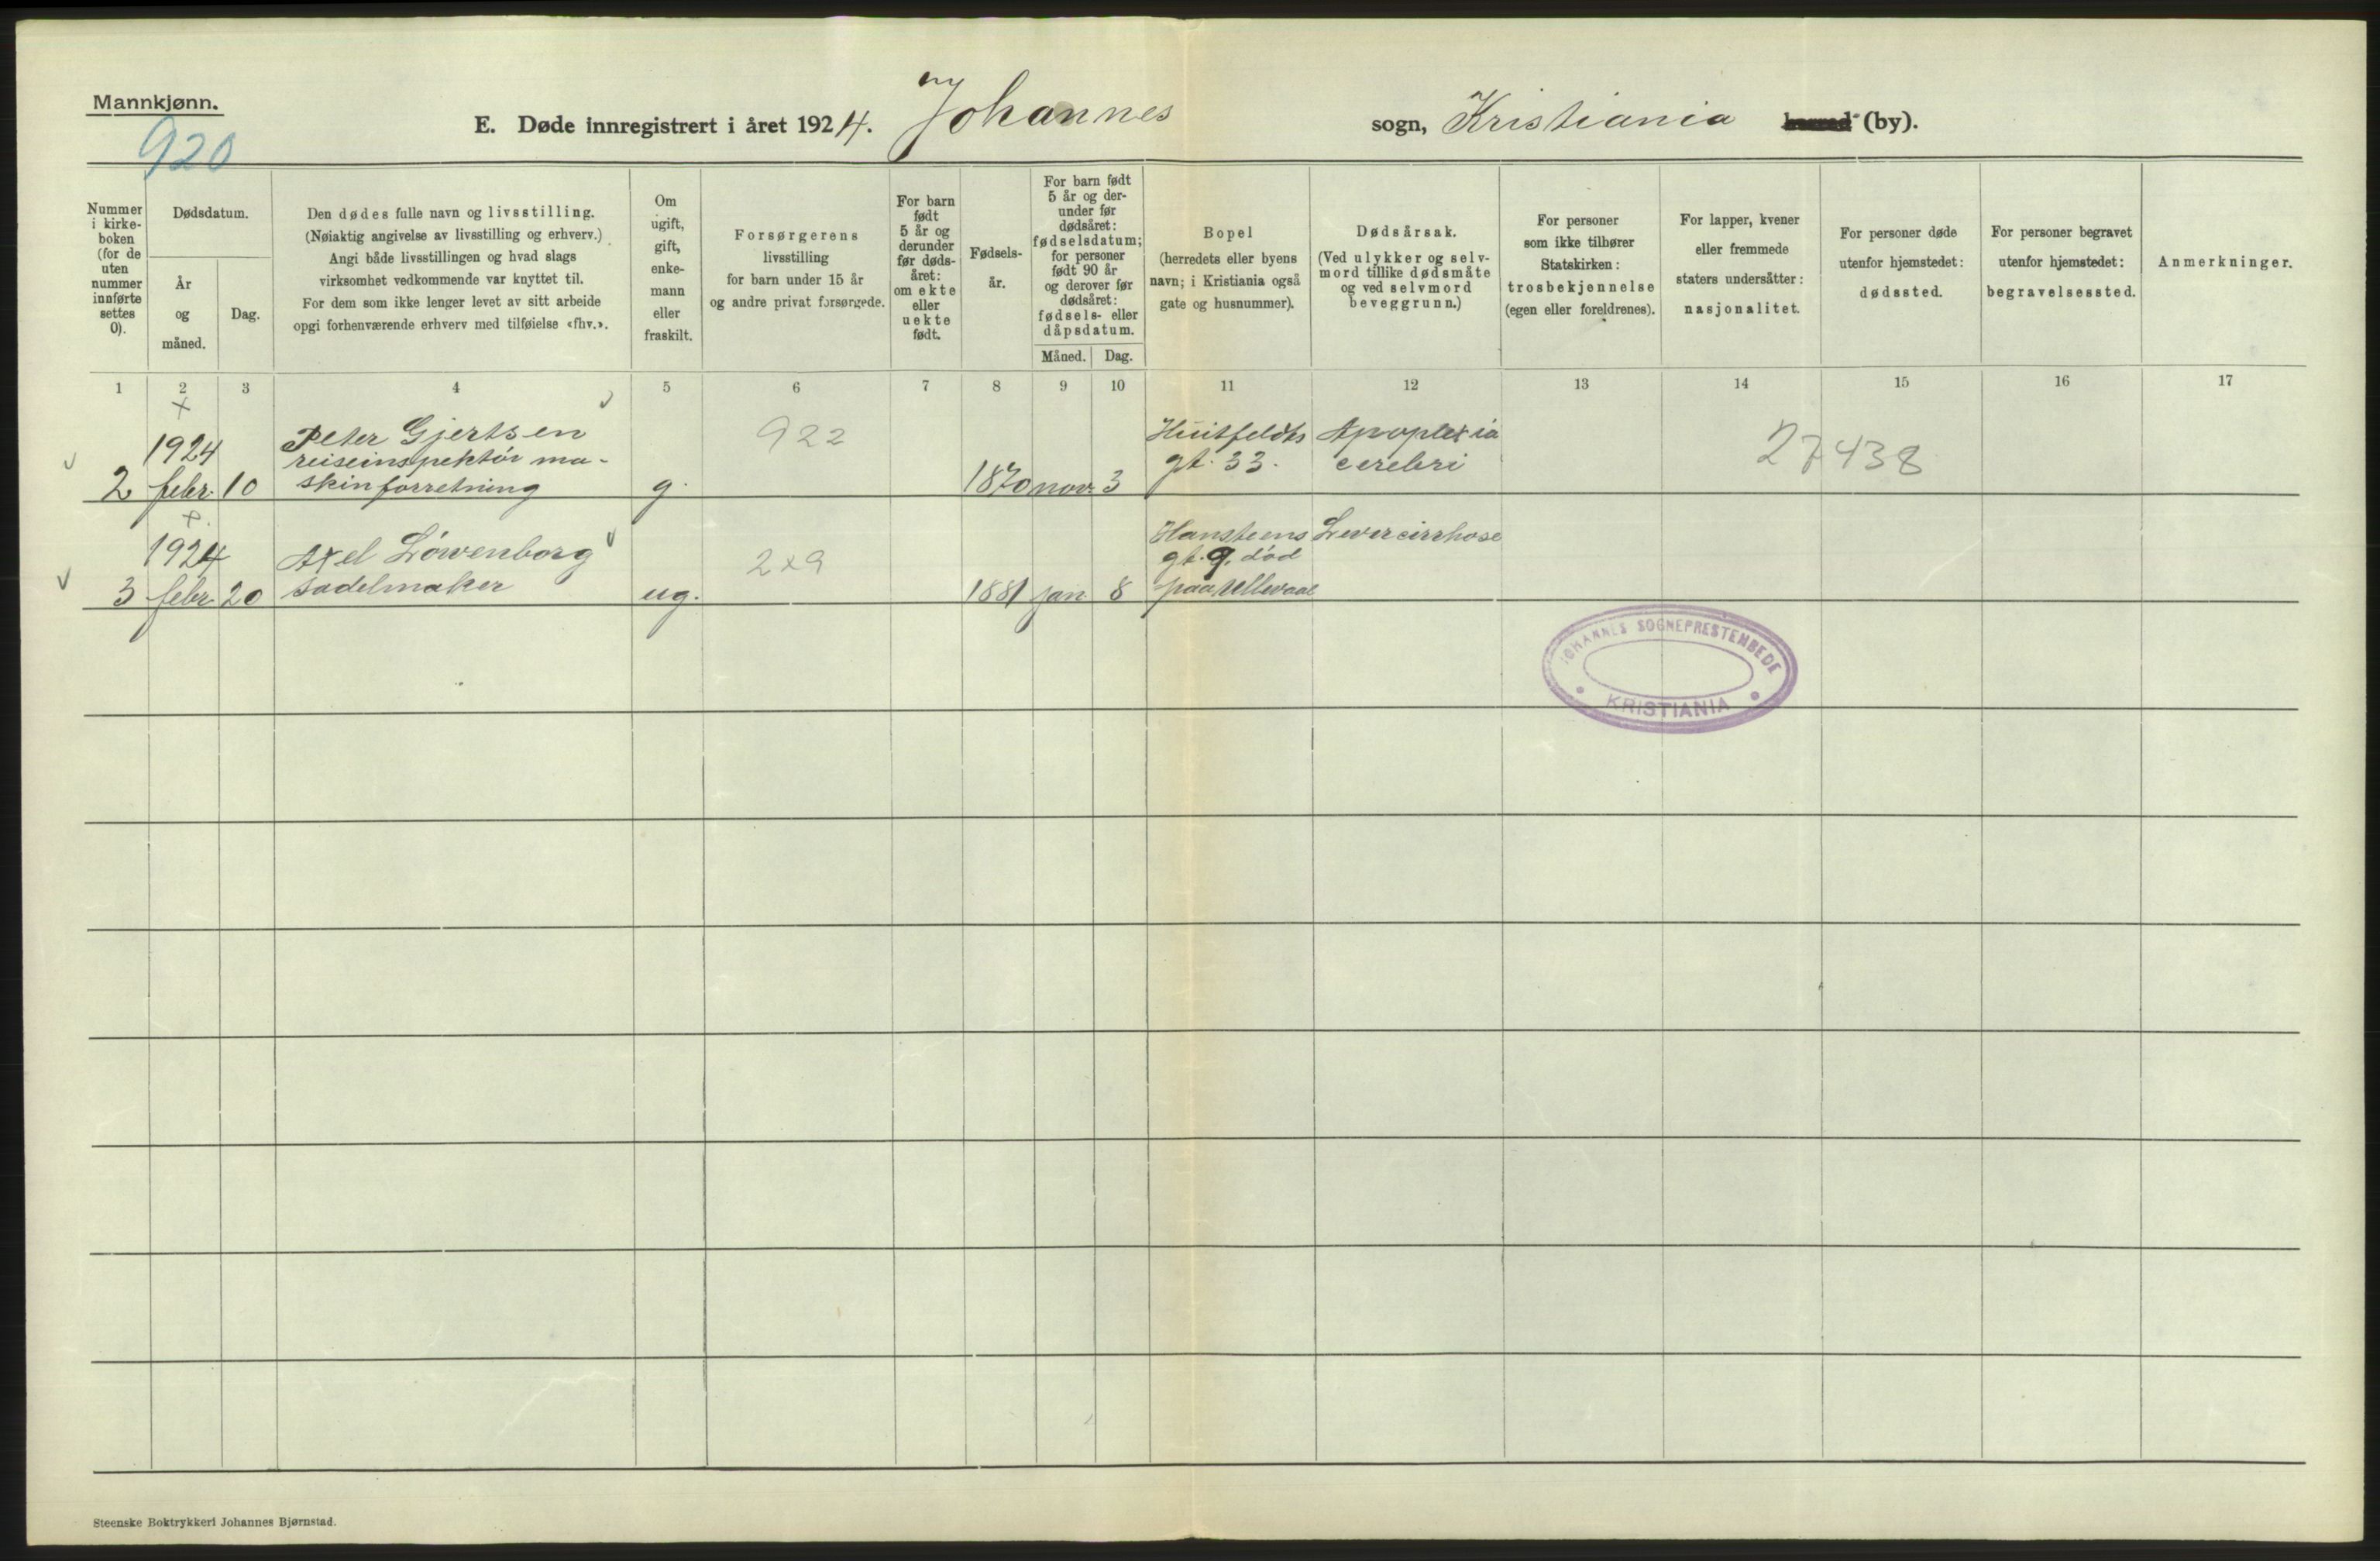 Mannkjønn.
920
E. Døde innregistrert i året 1924. Johannes sogn, Kristiania herred (by).
Nummer
i kirke-
boken
(for de
uten
nummer
innførte
settes
0).
Dødsdatum.
År
og
måned.
Dag.
Den dødes fulle navn og livsstilling.
(Nøiaktig angivelse av livsstilling og erhverv.)
Angi både livsstillingen og hvad slags
virksomhet vedkommende var knyttet til.
For dem som ikke lenger levet av sitt arbeide
opgi forhenværende erhverv med tilføielse «fhv.».
Om
ugift,
gift,
enke-
mann
eller
fraskilt.
Forsørgerens
livsstilling
for barn under 15 år
og andre privat forsørgede.
For barn
født
5 år og
derunder
før døds-
året:
om ekte
eller
uekte
født.
Fødsels-
år.
For barn født
5 år og der-
under før
dødsåret:
fødselsdatum;
for personer
født 90 år
og derover før
dødsåret:
fødsels- eller
dåpsdatum.
Måned. Dag.
Bopel
(herredets eller byens
navn; i Kristiania også
gate og husnummer).
Dødsårsak.
(Ved ulykker og selv-
mord tillike dødsmåte
og ved selvmord
beveggrunn.)
For personer
som ikke tilhører
Statskirken:
trosbekjennelse
(egen eller foreldrenes).
For lapper, kvener
eller fremmede
staters undersåtter:
nasjonalitet.
For personer døde
utenfor hjemstedet:
dødssted.
For personer begravet
utenfor hjemstedet:
begravelsessted.
Anmerkninger.
1 2 3 4 5 6 7 8 9 10 11 12 13 14 15 16 17
2
1924
febr. 10
Peter Gjertsen
reiseinspektør ma-
skinforretning
g.
922
1870 nov. 3
Huitfeldts
gt. 33.
Apoplexia
cerebri
27438
3
1924
febr. 20
Axel Löwenborg
sadelmaker
ug.
2x9
1881 jan. 8
Hansteens
gt. 9, død
paa Ullevaal
Levercirrhose
JOHANNES SOGNEPRESTEMBEDE
KRISTIANIA
Steenske Boktrykkeri Johannes Bjørnstad.